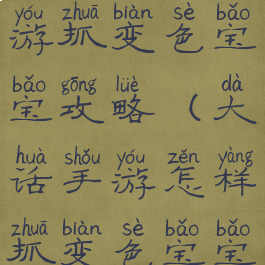 yóu zhuā biàn sè bǎo
游抓变色宝
bǎo gōng lüè dà
宝攻略（大
huà shǒu yóu zěn yàng
话手游怎样
zhuā biàn sè bǎo bǎo
抓变色宝宝